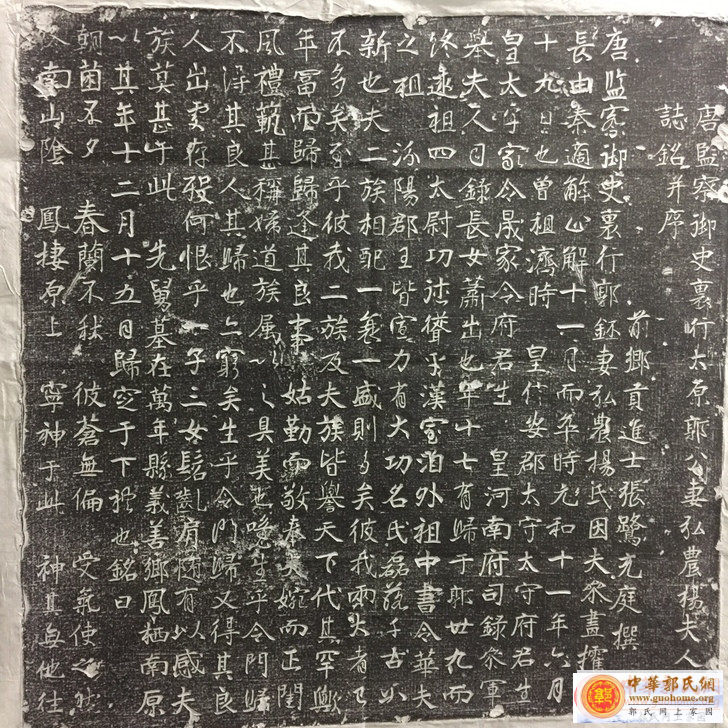 唐監察御史裏行太原郭公妻弘農楊夫人
誌銘并序
前鄉貢進士張鷺允庭撰
唐監察御史裏行郭 妻弘農楊氏因夫 盡
長由秦適解止解十一月而卒時元和十一年六月
十九日也曾祖濟時 皇 安郡太守太守府君生
皇太 家令晟家令府君生 皇河南府司錄參軍
舉夫人司錄長女蕭出也年十七有歸于郭廿九而
終遠祖四太尉功 聳于漢室洎外祖中書令華夫
之祖 汾陽郡王皆宣力有大功名氏磊 千古
新也夫二族相配一 一盛則 矣彼我兩大者
不多矣 乎彼我二族及夫族皆譽天下代其罕
年富而歸歸逢其良事姑勤而敬奉 婉而正閨
風禮範甚稱婦道族屬 之具美也 生平令門歸
不得其良人其歸也亦窮矣生乎令門歸又得其良
人出處存歿何恨乎一子三女髫齓肩隨有以感夫
族莫甚乎此 先舅墓在萬年縣義善鄉鳳栖南原
以其年十二月十五日歸窆于下 禮也銘曰
朝菌不夕 春蘭不秋 彼蒼無偏 受氣使之
南山陰 鳳棲原上 寧神于此 神其毋他往
中華郭氏網
www.guohome.org
郭氏網上家園